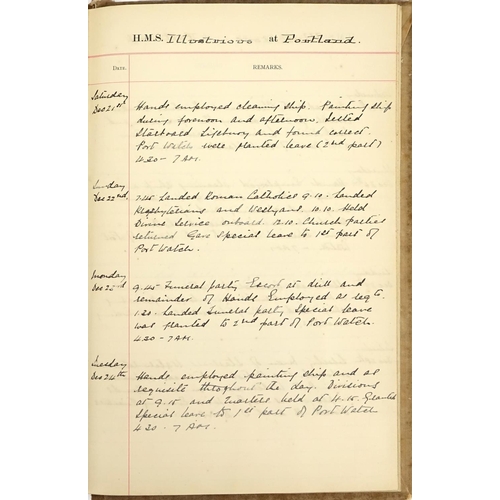 H.M.S. Illustrious at Portland.
DATE.
REMARKS.
Saturday
Dec 21st
Hands employed cleaning ship. Painting ship
during forenoon and afternoon. Tested
Starboard Lifebuoy and found correct.
Port Watch were granted leave (2nd part)
4.20 - 7 AM.
Sunday
Dec 22nd.
7.45 Landed Roman Catholics 9.10. Landed
Presbyterians and Wesleyans. 10.10. Held
Divine Service onboard. 12.10. Church parties
returned Gave special leave to 1st part of
Port Watch.
Monday
Dec 23rd
9.45 Funeral party Escort at drill and
remainder of Hands Employed as reqte.
1.20. Landed Funeral party Special leave
was granted to 2nd part of Port Watch.
4.20 - 7 AM.
Tuesday
Dec 24th
Hands employed painting ship and as
requisite throughout the day. Divisions
at 9.15 and Quarters held at 4.15. Granted
Special leave to 1st part of Port Watch
4.20 - 7 AM.